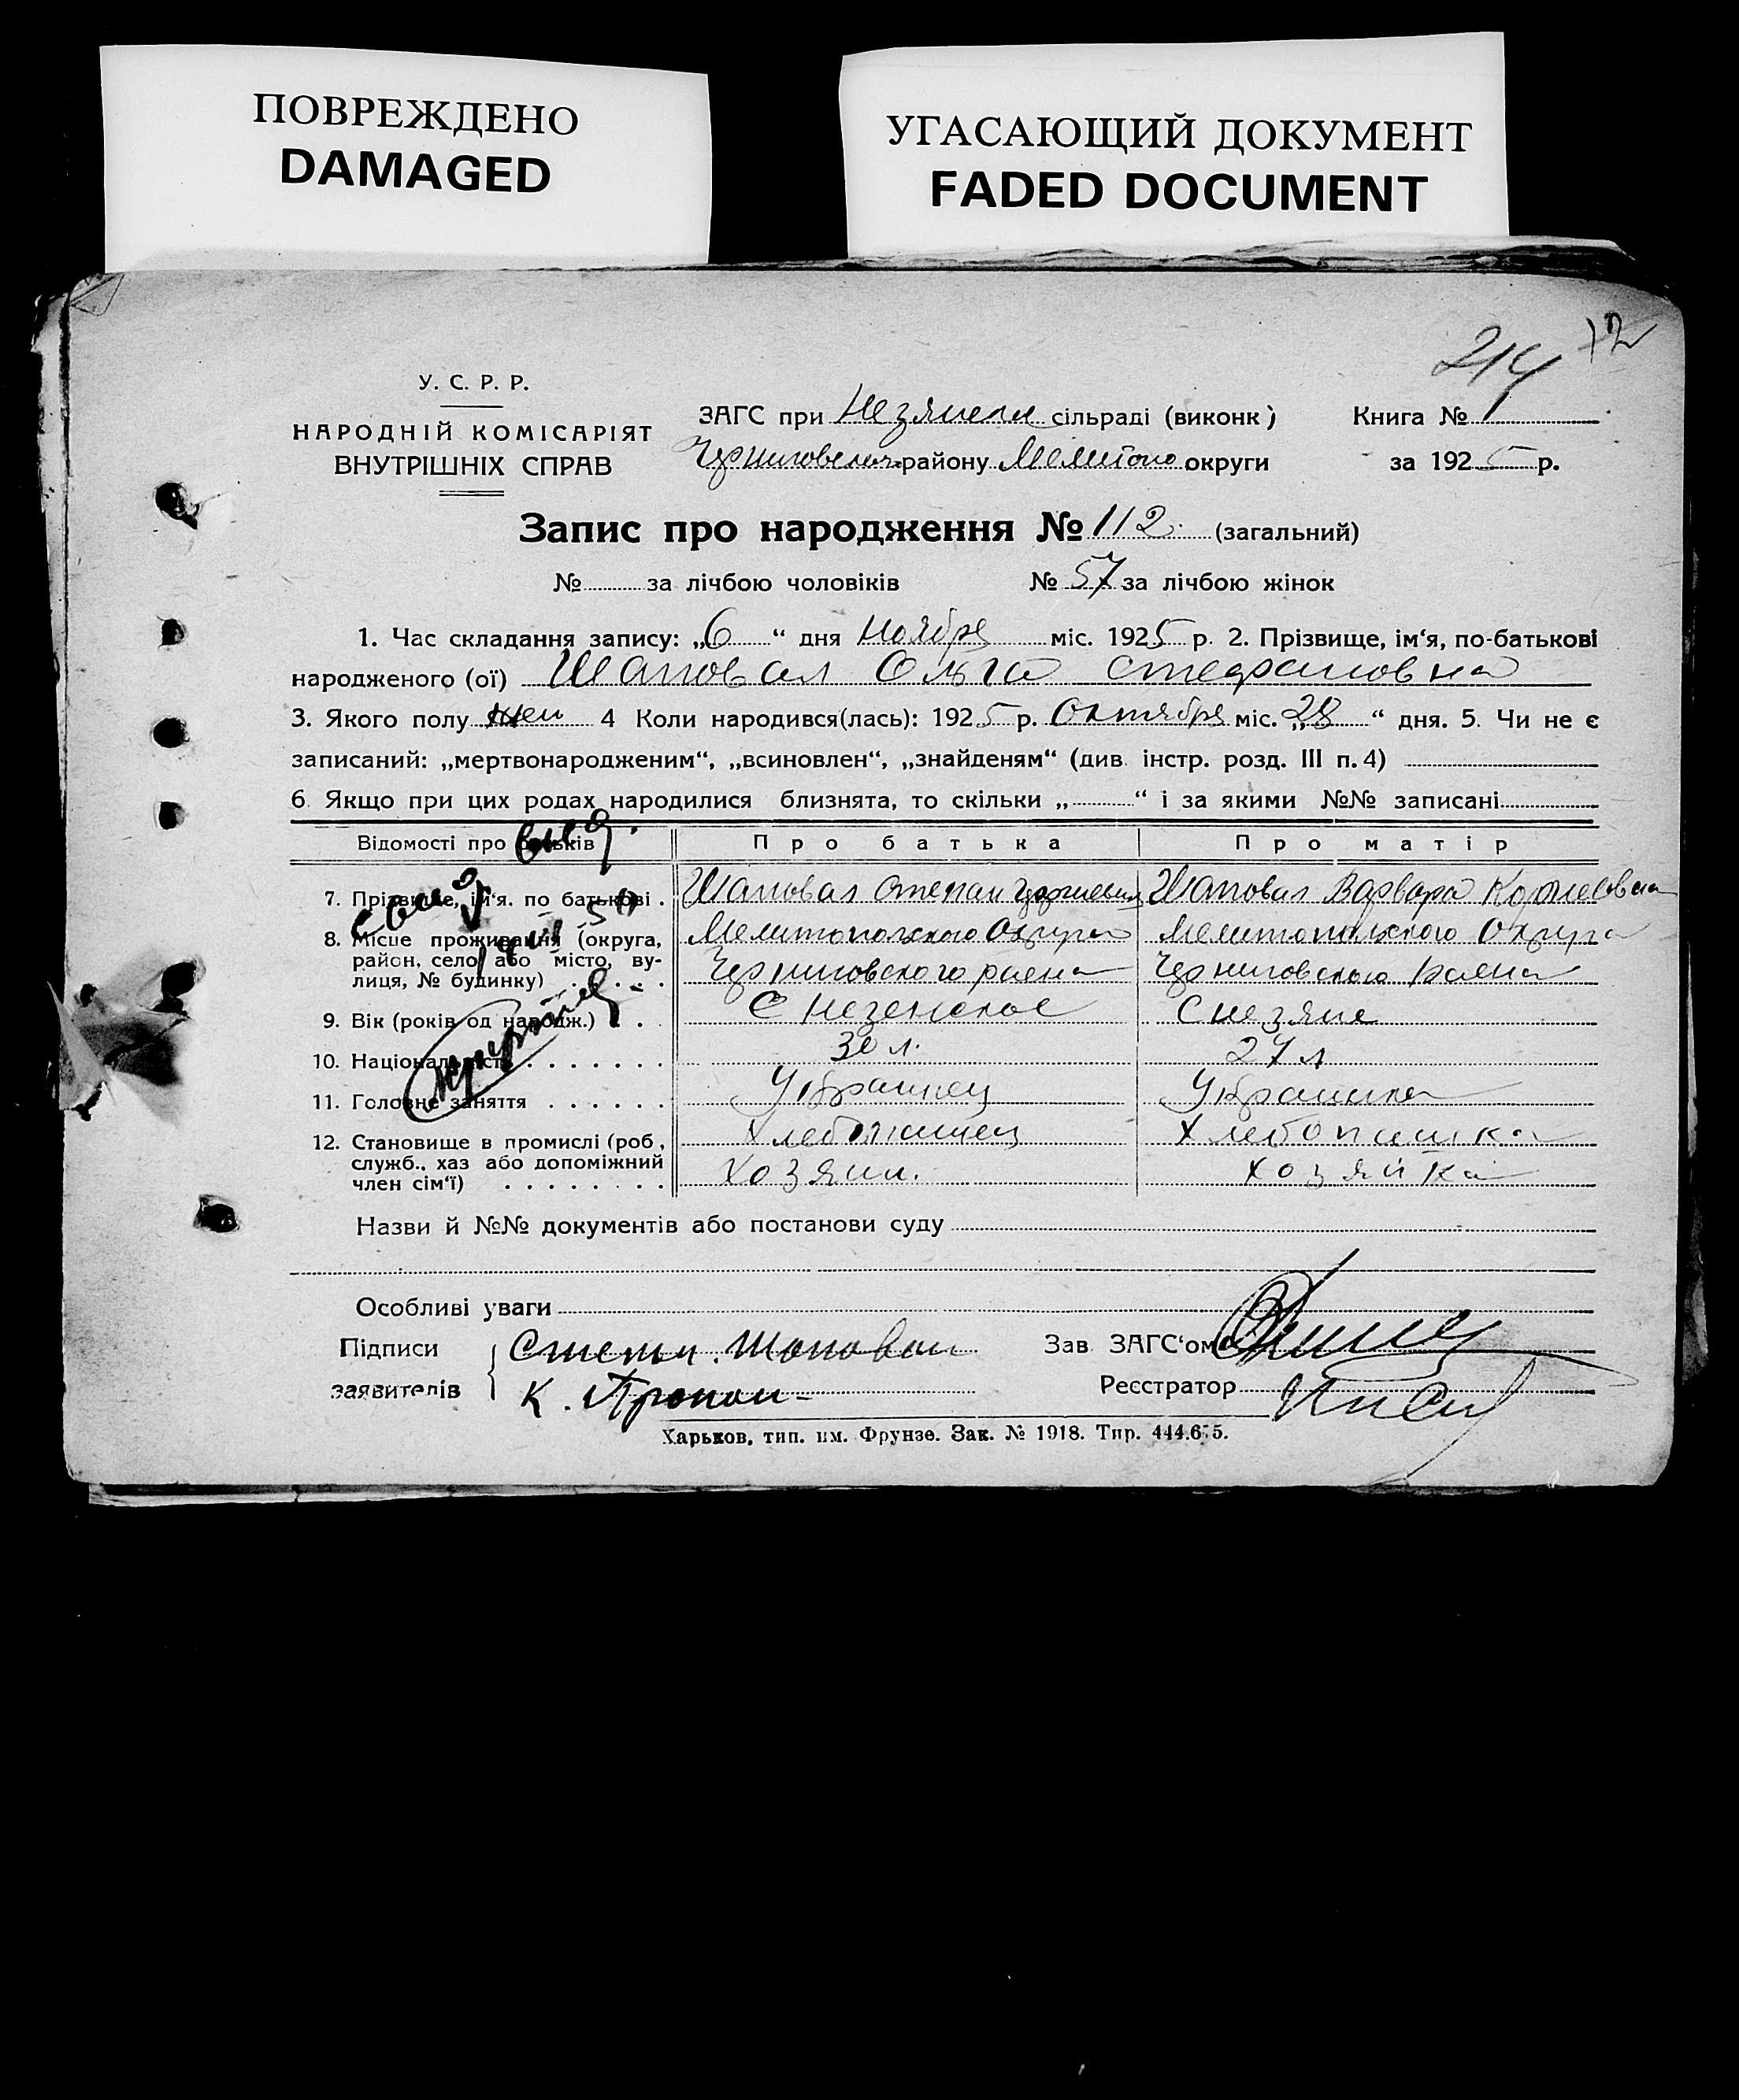 ПОВРЕЖДЕНО
DAMAGED
УГАСАЮЩИЙ ДОКУМЕНТ
FADED DOCUMENT
214 12
У. С. Р. Р.
НАРОДНІЙ КОМІСАРІЯТ
ВНУТРІШНІХ СПРАВ
ЗАГС при сільраді (виконк) Книга № 1
району Мелитопо округи за 1925 р.
Запис про народження № 112 (загальний)
№ за лічбою чоловіків № 57 за лічбою жінок
1. Час складання запису: „6“ дня Ноября міс. 1925 р. 2. Прізвище, ім‘я, по-батькові
народженого (ої) Шаповал Ольга Стефановна
3. Якого полу жен 4 Коли народився(лась): 1925 р. Октября міс. „28“ дня. 5. Чи не є
записаний: „мертвонародженим“, „всиновлен“, „знайденям“ (див. інстр. розд. III п. 4)
6. Якщо при цих родах народилися близнята, то скільки „ “ і за якими №№ записані
Відомості про батьків Про батька Про матір
7. Прізвище, ім‘я. по батькові . Шаповал Степан Шаповал Варвара Корнеевна
8. Місце проживання (округа, Мелитопольского Округа Мелитопольского Округа
район, село або місто, ву-
лиця, № будинку) Черниговского раена Черниговского раена
9. Вік (років од народж.) . . С Незенское С Незяне
10. Національність . . . . . . . 30 л. 27 л
11. Головне заняття . . . . . . Украинец Украинка
12. Становище в промислі (роб, Хлебопашец Хлебопашка
служб., хаз або допоміжний
член сім‘ї) . . . . . . . . Хозяин. Хозяйка
Назви й №№ документів або постанови суду
Особливі уваги
Підписи Степан. Шаповал Зав ЗАГС‘ом
заявителів К. Реєстратор
Харьков, тип. им. Фрунзе. Зак. № 1918. Тир. 444.675.